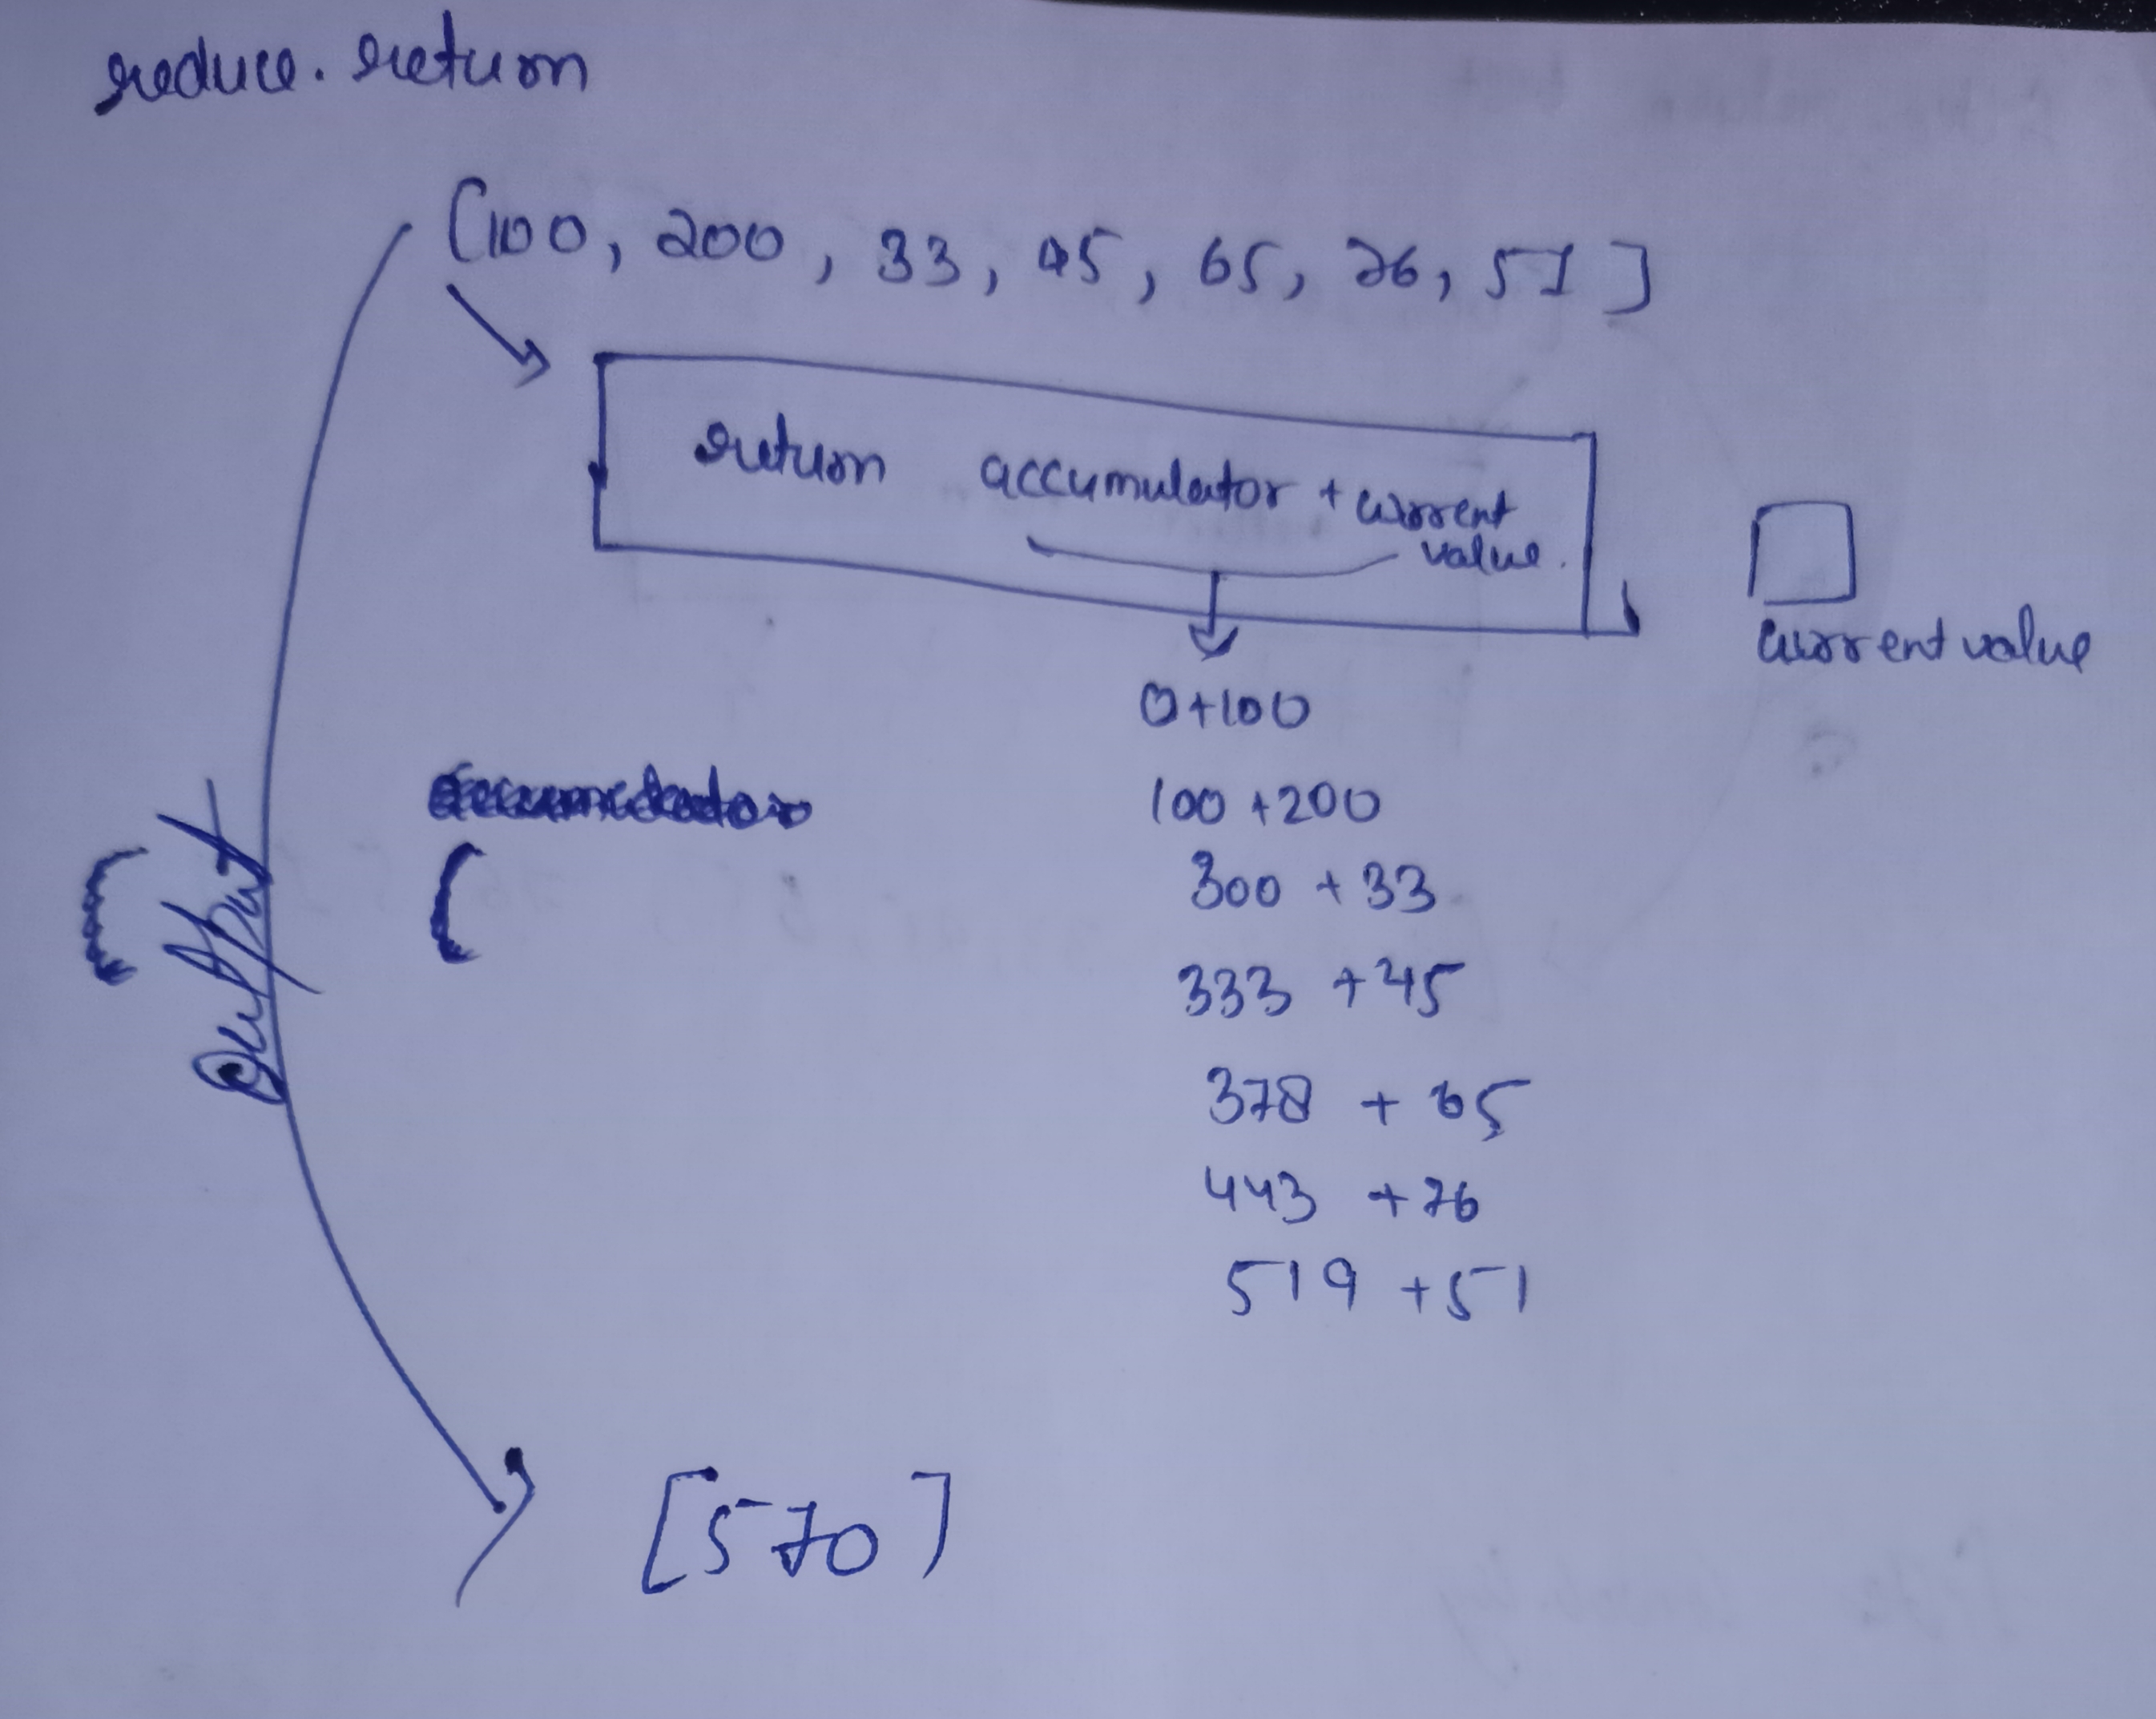 reduce. return
[100, 200, 33, 45, 65, 76, 51]
return accumulator + current
value.
current value
0+100
100 +200
300 + 33
333 +45
378 + 65
443 +76
519 +51
Output
[570]